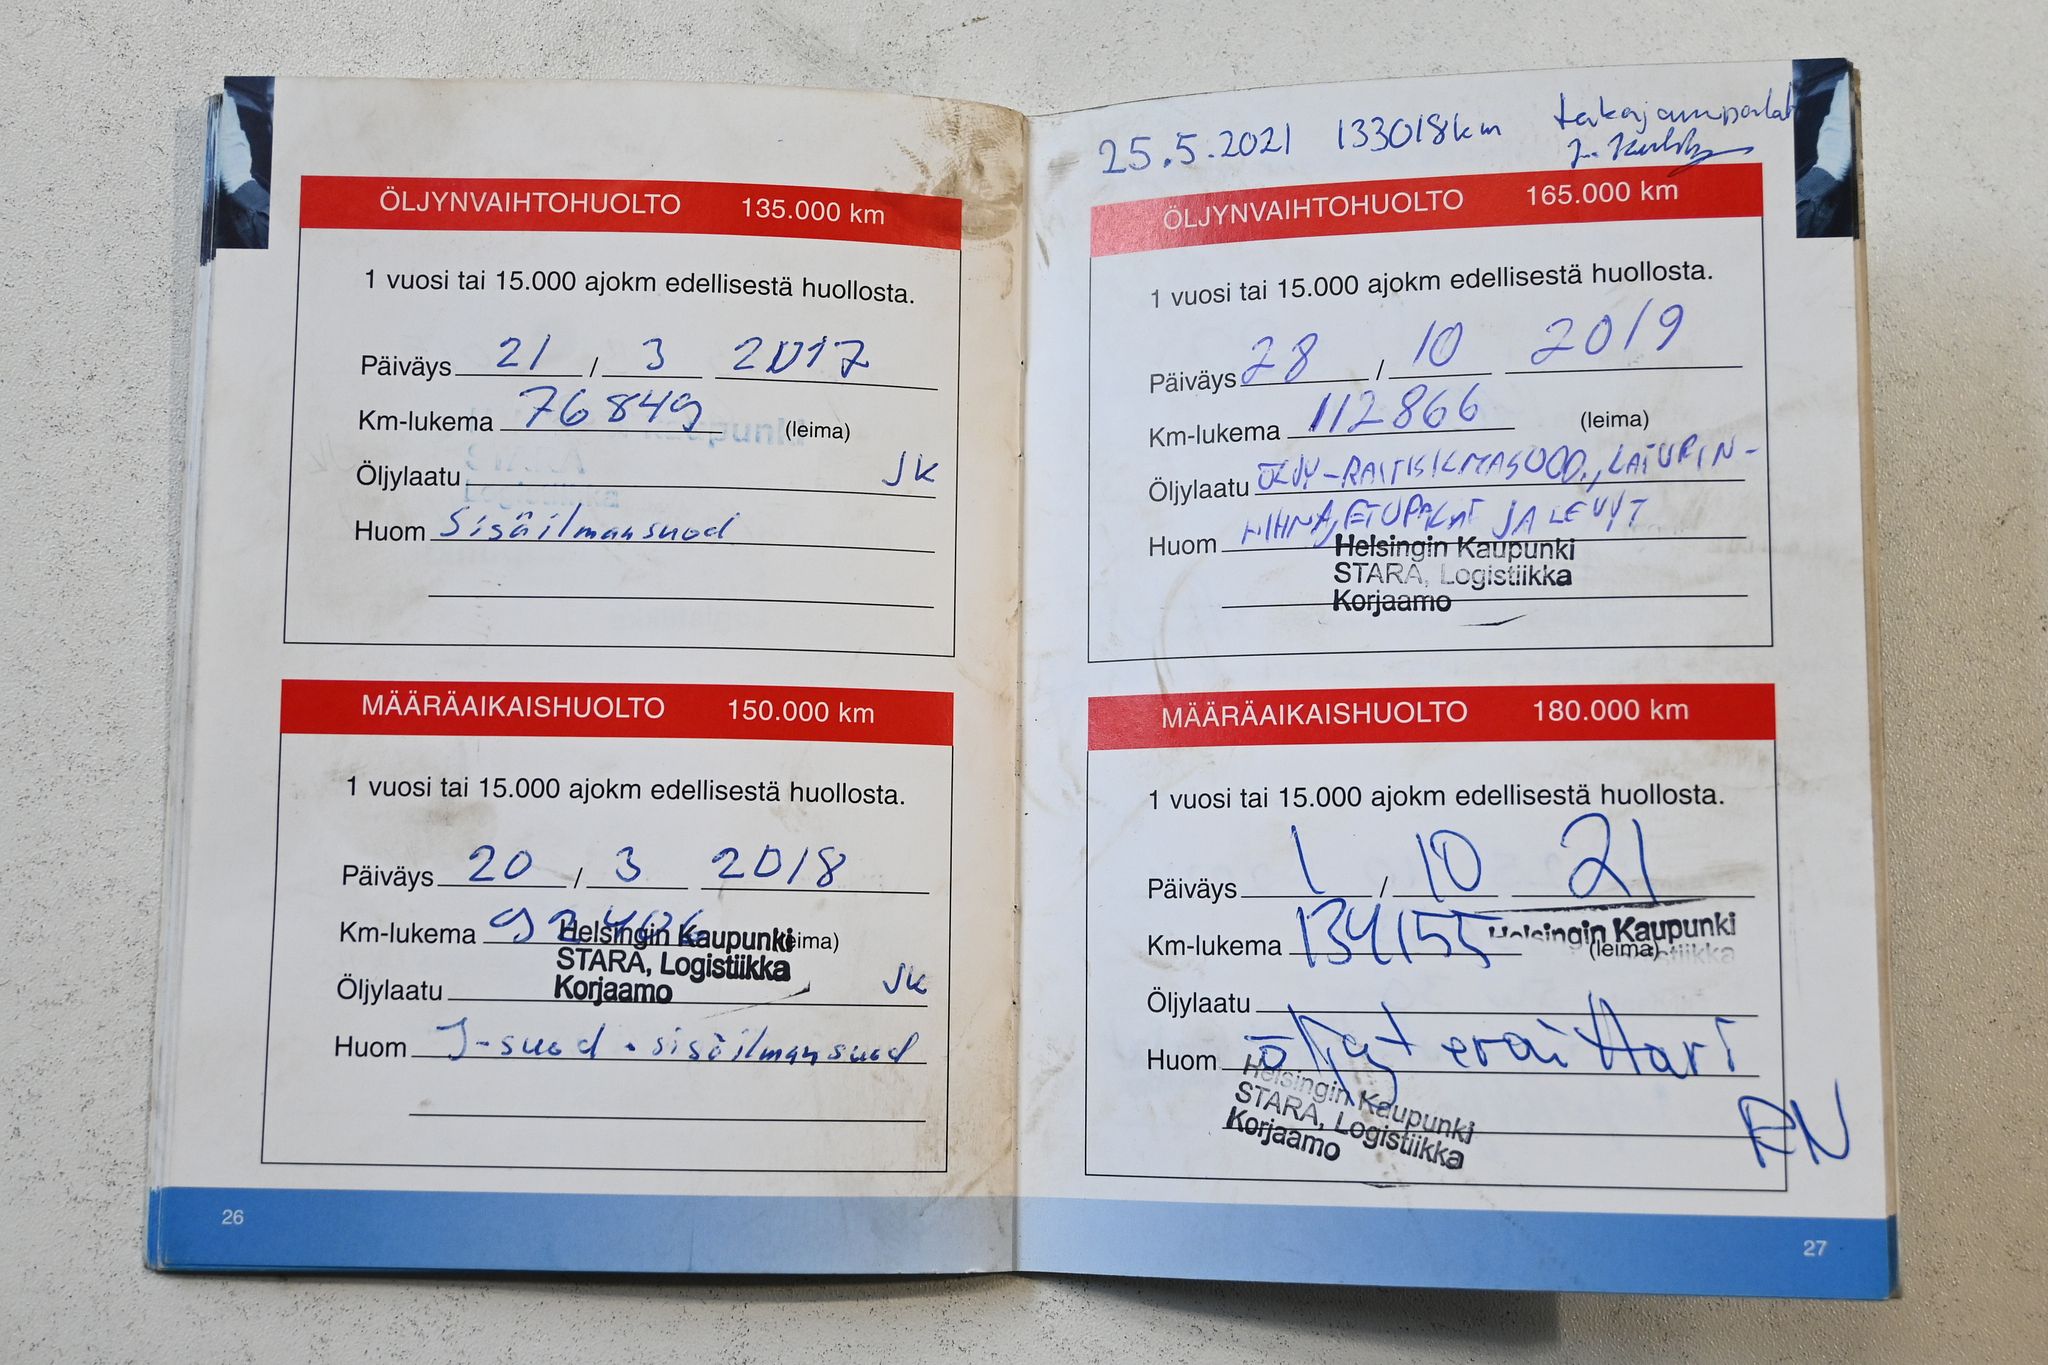 ÖLJYNVAIHTOHUOLTO 135.000 km
1 vuosi tai 15.000 ajokm edellisestä huollosta.
Päiväys 21 / 3 2017
Km-lukema 76849 (leima)
Öljylaatu JK
Huom Sisäilmansuod
MÄÄRÄAIKAISHUOLTO 150.000 km
1 vuosi tai 15.000 ajokm edellisestä huollosta.
Päiväys 20 / 3 2018
Km-lukema (leima)
Helsingin Kaupunki
STARA, Logistiikka
Korjaamo
Öljylaatu JK
Huom I-suod . sisäilmansuod
26
25.5.2021 133018km takajarrupalat
ÖLJYNVAIHTOHUOLTO 165.000 km
1 vuosi tai 15.000 ajokm edellisestä huollosta.
Päiväys 28 / 10 2019
Km-lukema 112866 (leima)
Öljylaatu ÖLJY-RAITISILMASUOD., LATURIN-
Huom HIHNA, ETUPALAT JA LEVYT
Helsingin Kaupunki
STARA, Logistiikka
Korjaamo
MÄÄRÄAIKAISHUOLTO 180.000 km
1 vuosi tai 15.000 ajokm edellisestä huollosta.
Päiväys 1 / 10 21
Km-lukema 134155 (leima)
Helsingin Kaupunki
Logistiikka
Öljylaatu
Huom
Helsingin Kaupunki
STARA, Logistiikka
Korjaamo
RN
27